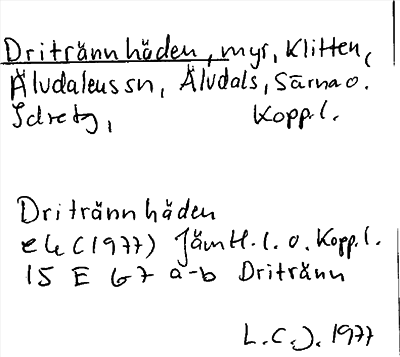 Dritrännhäden, myr, Klitten,
Älvdalens sn, Älvdals, Särna o.
Idre tg, Kopp.l.
Dritrännhäden
ek (1977) Jämtl. l. o. Kopp.l.
15 E 67 a-b Dritränn
L.C.J. 1977